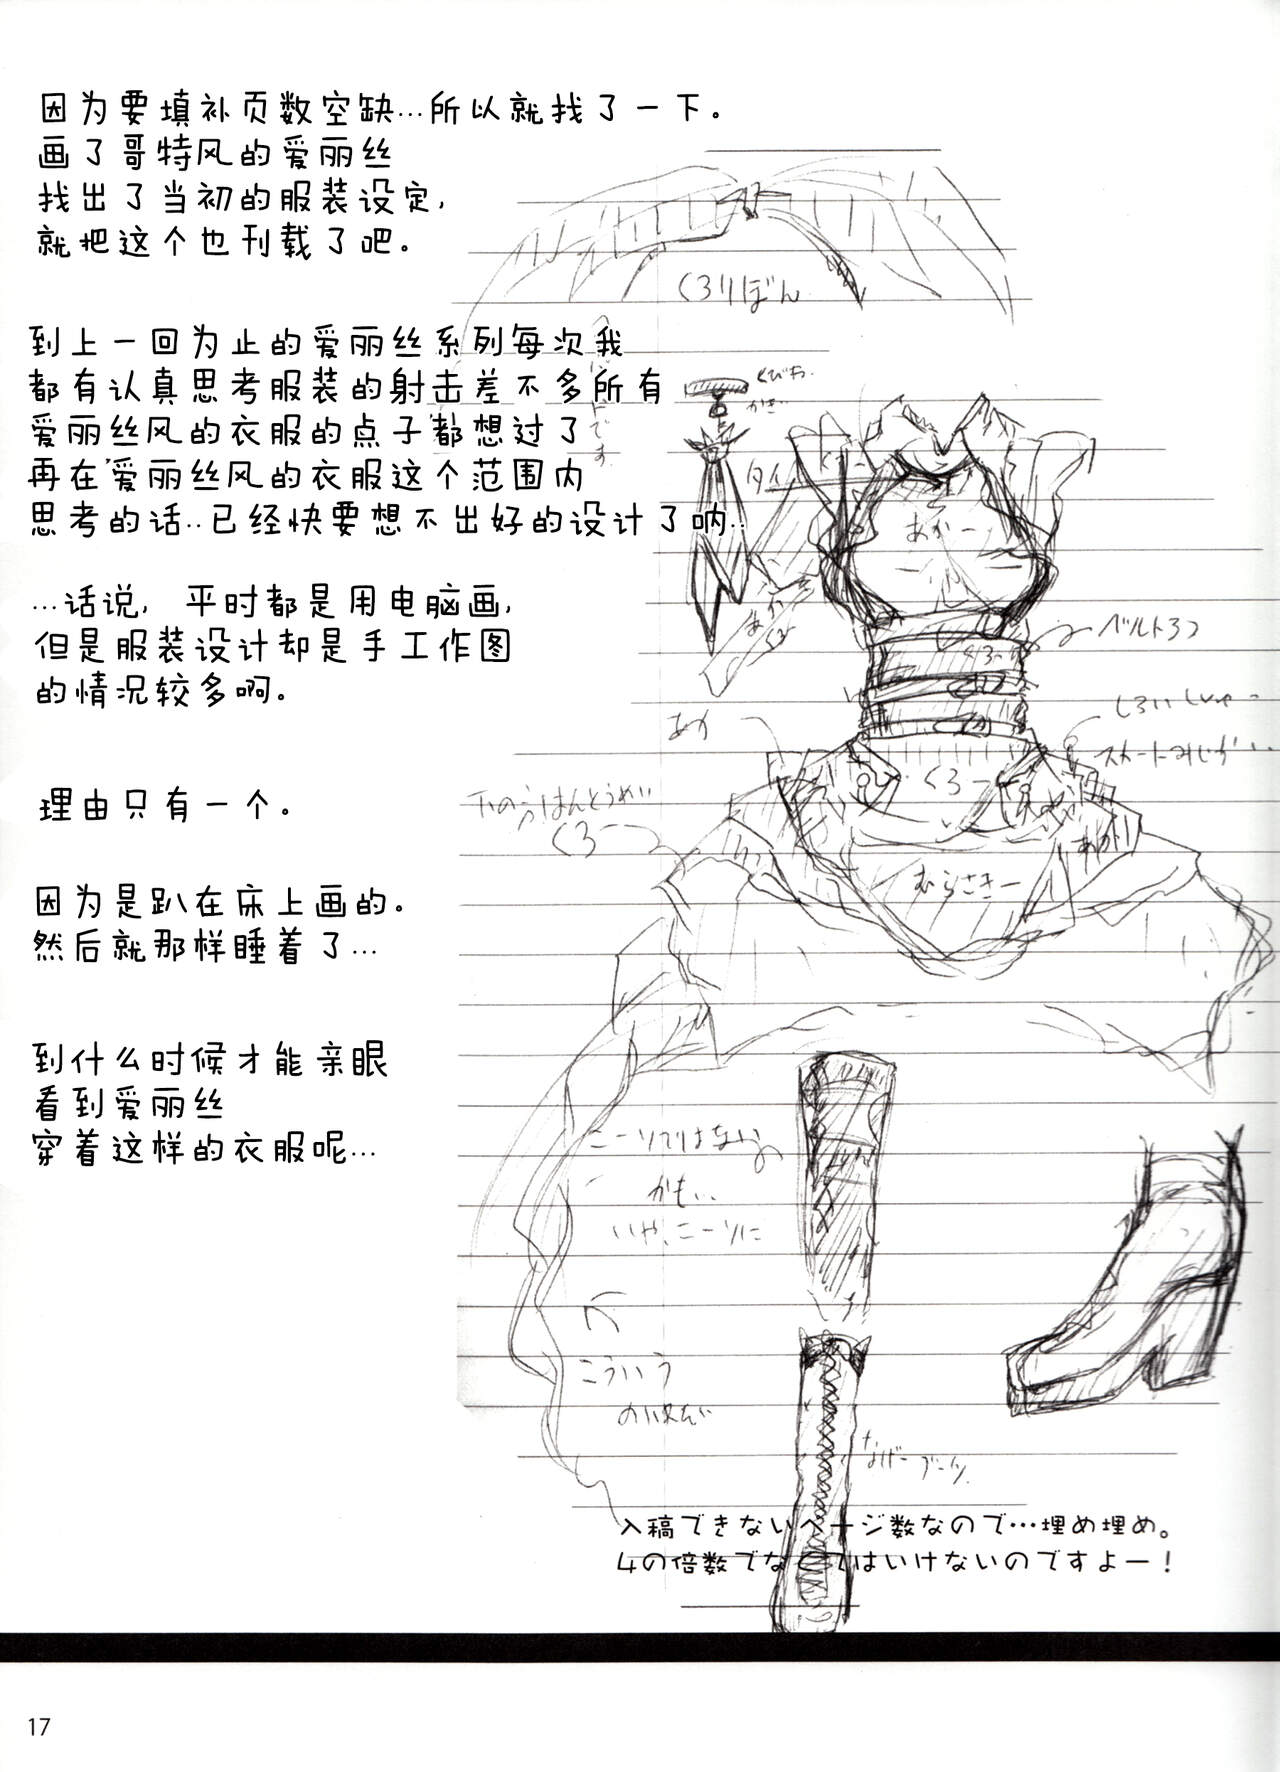 因为要填补页数空缺…所以就找了一下。
画了哥特风的爱丽丝
找出了当初的服装设定,
就把这个也刊载了吧。
到上一回为止的爱丽丝系列每次我
都有认真思考服装的射击差不多所有
爱丽丝风的衣服的点子都想过了
再在爱丽丝风的衣服这个范围内
思考的话..已经快要想不出好的设计了呐..
…话说, 平时都是用电脑画,
但是服装设计却是手工作图
的情况较多啊。
理由只有一个。
因为是趴在床上画的。
然后就那样睡着了…
到什么时候才能亲眼
看到爱丽丝
穿着这样的衣服呢…
くろりぼん
くびわ
あかー
ベルト3つ
くろー
あか
スカートみじかい
くろー
あかり
むらさきー
下のうはんとうめい
くろー
ニーソではないの
かも..
いや、ニーソに
こういう
のはだい
なげーブーツ
入稿できないページ数なので…埋め埋め。
4の倍数でなくてはいけないのですよー!
17